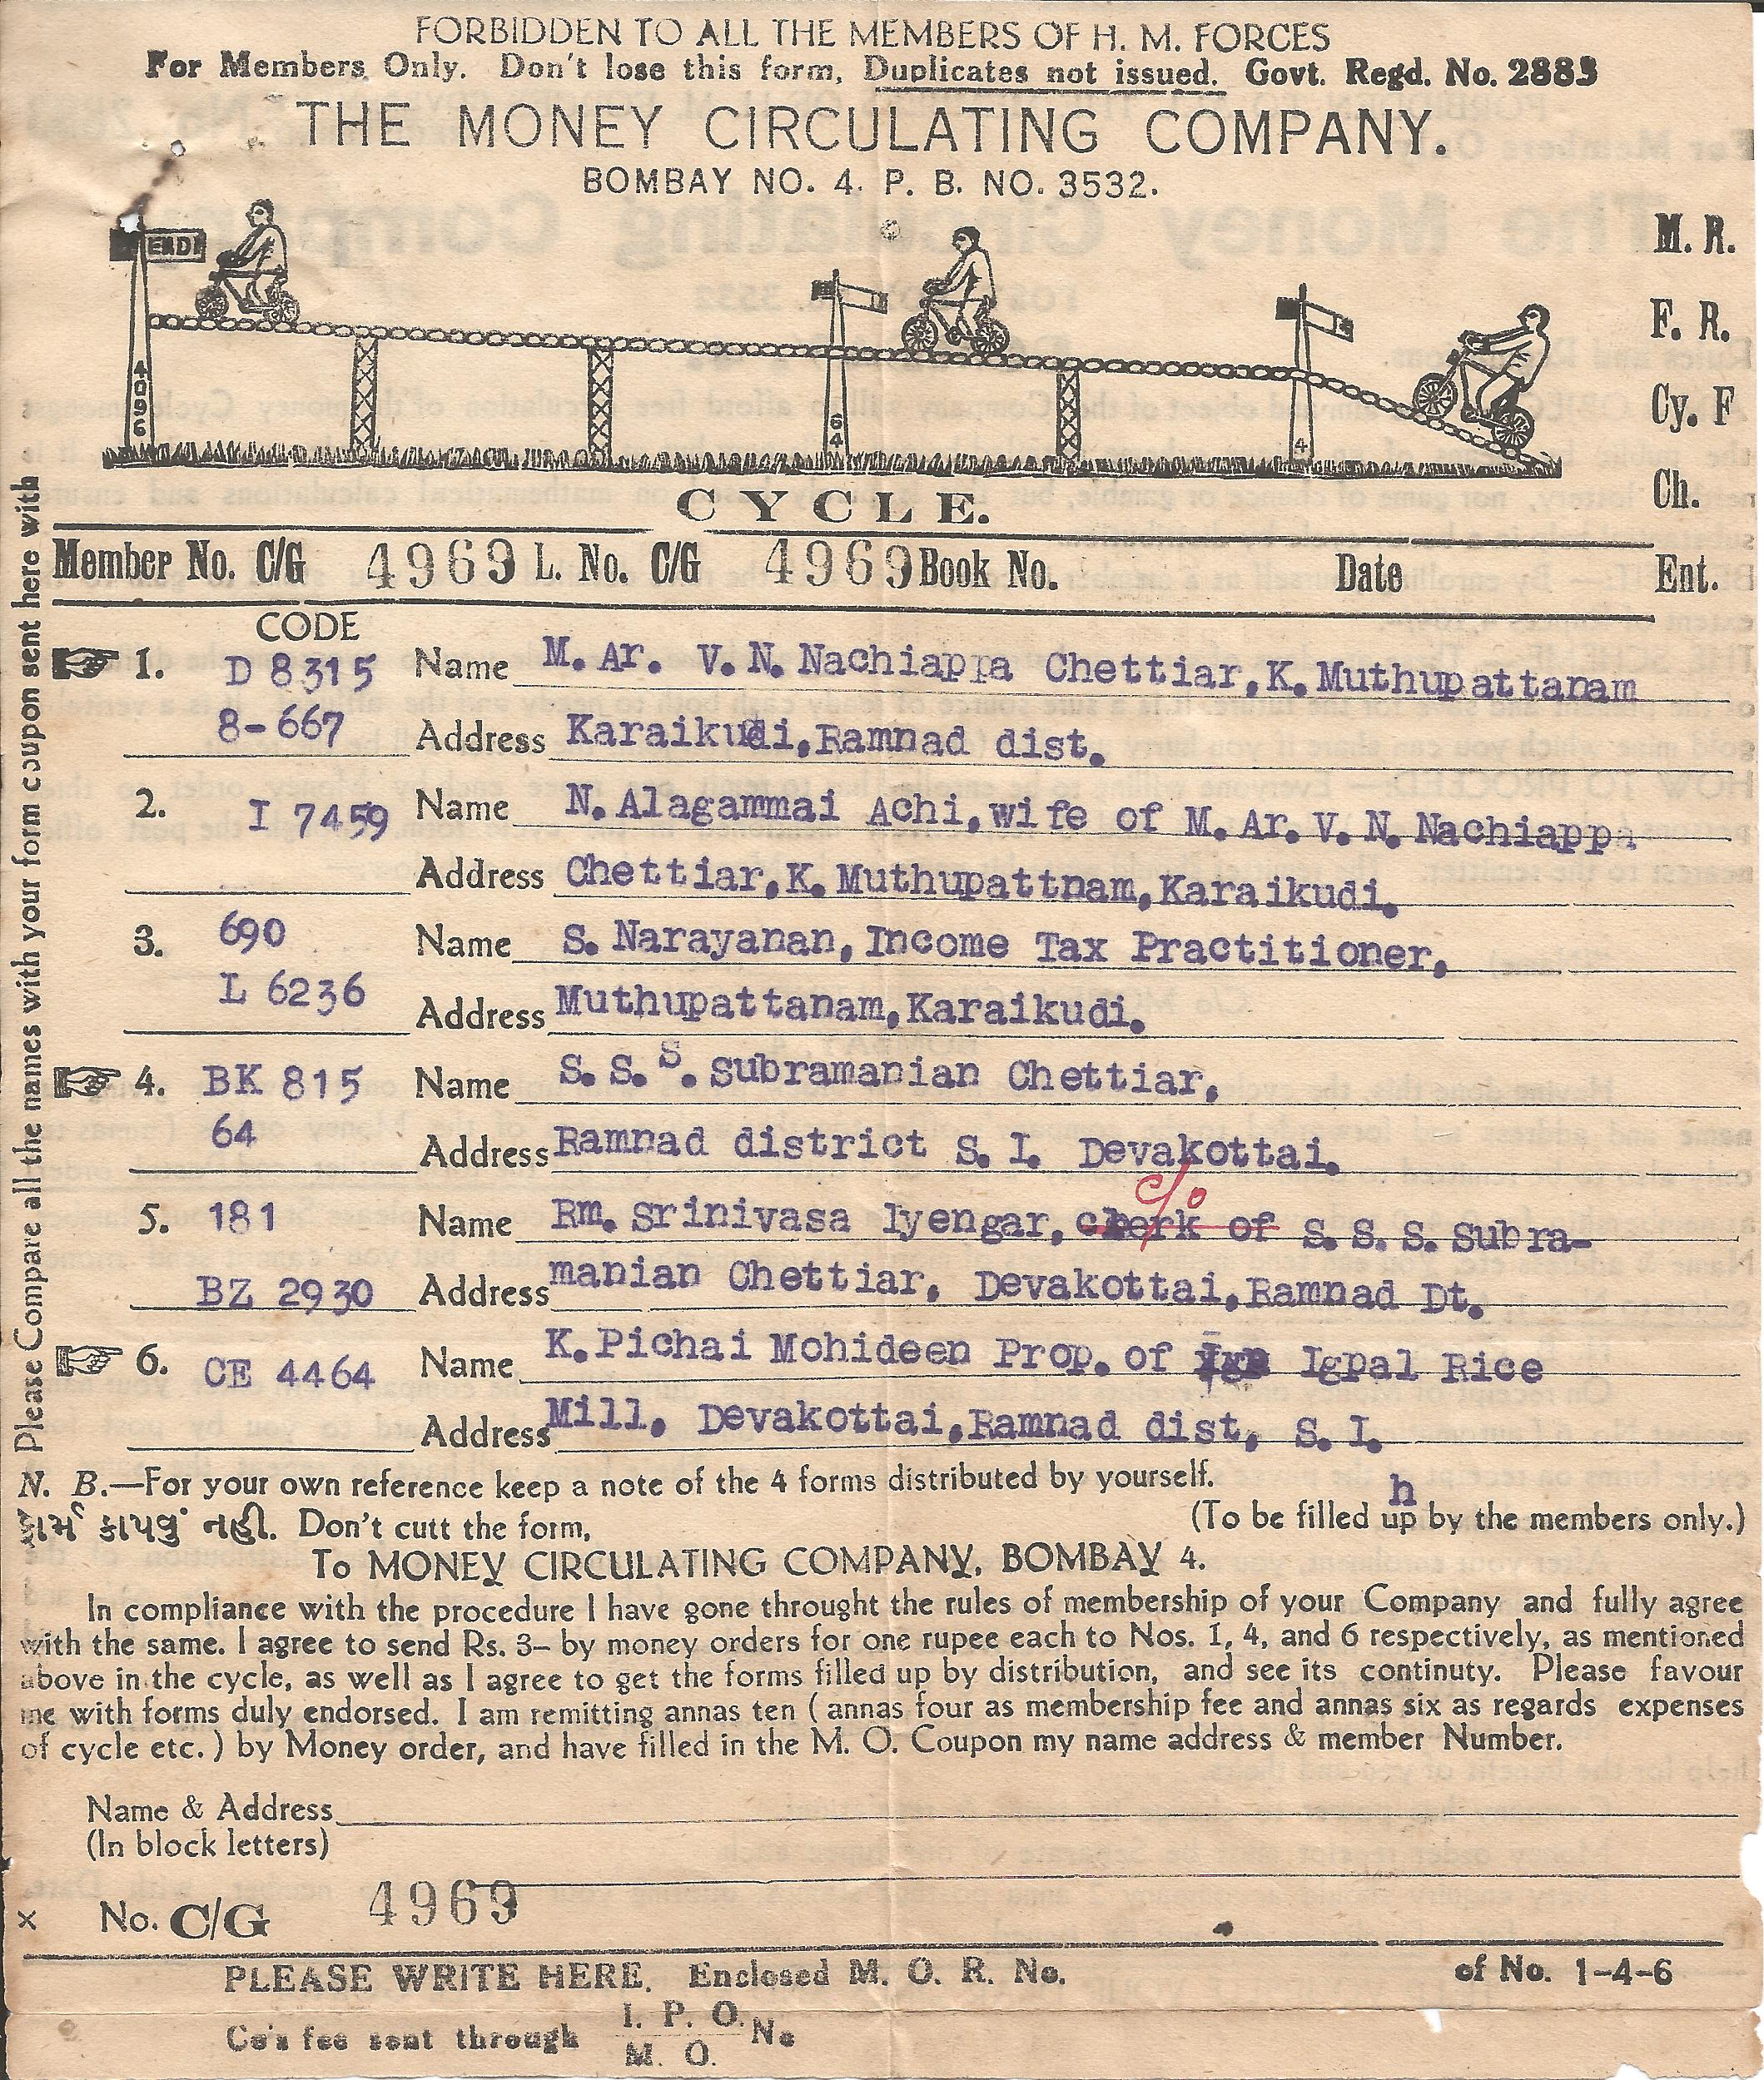 FORBIDDEN TO ALL THE MEMBERS OF H. M. FORCES
For Members Only. Don't lose this form, Duplicates not issued. Govt. Regd. No. 2883
THE MONEY CIRCULATING COMPANY.
BOMBAY NO. 4. P. B. NO. 3532.
M. R.
END
F. R.
4096
64
4
Cy. F
Ch.
CYCLE.
Member No. C/G 4969 L. No. C/G 4969 Book No. Date Ent.
CODE
1. D 8315 Name M. Ar. V. N. Nachiappa Chettiar, K. Muthupattanam
8-667 Address Karaikudi, Ramnad dist.
2. I 7459 Name N. Alagammai Achi, wife of M. Ar. V. N. Nachiappa
Address Chettiar, K. Muthupattnam, Karaikudi.
3. 690 Name S. Narayanan, Income Tax Practitioner,
L 6236 Address Muthupattanam, Karaikudi.
4. BK 815 Name S. S. S. Subramanian Chettiar,
64 Address Ramnad district S. I. Devakottai.
c/o
5. 181 Name Rm. Srinivasa Iyengar, clerk of S. S. S. Subra-
BZ 2930 Address manian Chettiar, Devakottai, Ramnad Dt.
6. CE 4464 Name K. Pichai Mohideen Prop. of Igpal Rice
Address Mill, Devakottai, Ramnad dist, S. I.
Please Compare all the names with your form coupon sent here with
N. B.—For your own reference keep a note of the 4 forms distributed by yourself.
h
ફાર્મ કાપવું નહી. Don't cutt the form, (To be filled up by the members only.)
To MONEY CIRCULATING COMPANY, BOMBAY 4.
In compliance with the procedure I have gone throught the rules of membership of your Company and fully agree
with the same. I agree to send Rs. 3– by money orders for one rupee each to Nos. 1, 4, and 6 respectively, as mentioned
above in the cycle, as well as I agree to get the forms filled up by distribution, and see its continuty. Please favour
me with forms duly endorsed. I am remitting annas ten ( annas four as membership fee and annas six as regards expenses
of cycle etc. ) by Money order, and have filled in the M. O. Coupon my name address & member Number.
Name & Address
(In block letters)
x No. C/G 4969
PLEASE WRITE HERE. Enclosed M. O. R. No. of No. 1–4–6
Co's fee sent through I. P. O. No
M. O.